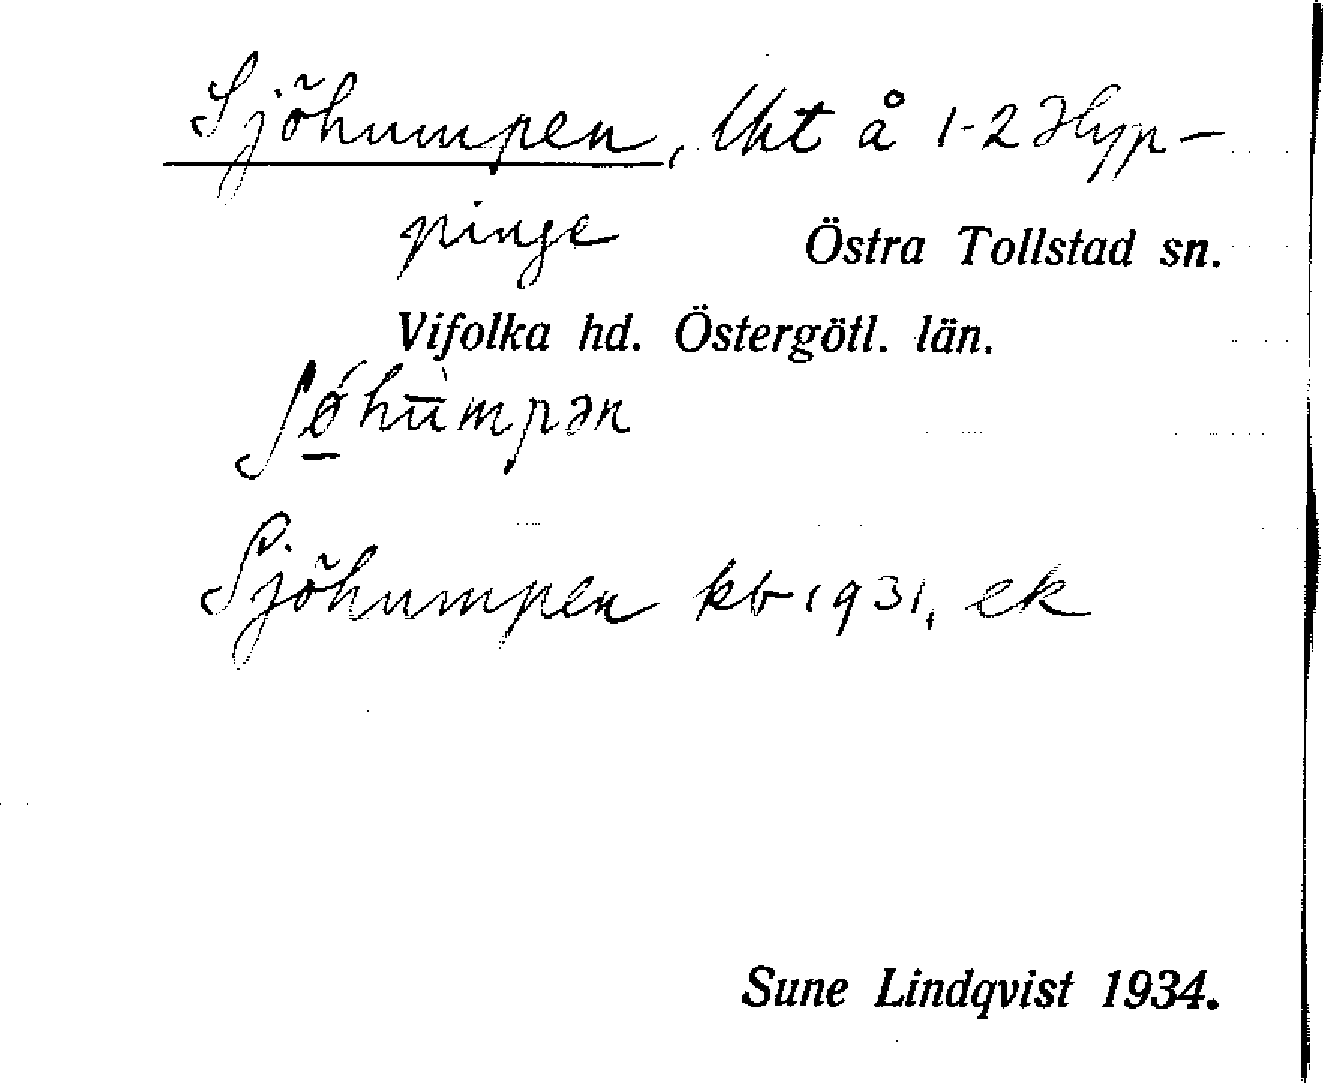 Sjöhumpen, lht å 1-2 Hyp-
pinge Östra Tollstad sn.
Vifolka hd. Östergötl. län.
ʃø̀hùmpən
Sjöhumpen kb 1931, ek
Sune Lindqvist 1934.